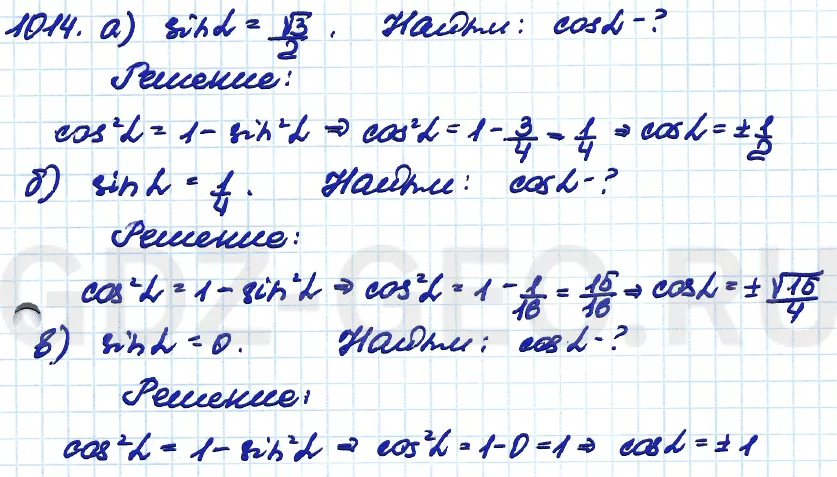 1014. а) sin α = √3/2. Найти: cos α - ?
Решение:
cos²α = 1 - sin²α ⇒ cos²α = 1 - 3/4 = 1/4 ⇒ cos α = ± 1/2
б) sin α = 1/4. Найти: cos α - ?
Решение:
cos²α = 1 - sin²α ⇒ cos²α = 1 - 1/16 = 15/16 ⇒ cos α = ± √15/4
GDZ-GEO.RU
в) sin α = 0. Найти: cos α - ?
Решение:
cos²α = 1 - sin²α ⇒ cos²α = 1 - 0 = 1 ⇒ cos α = ± 1